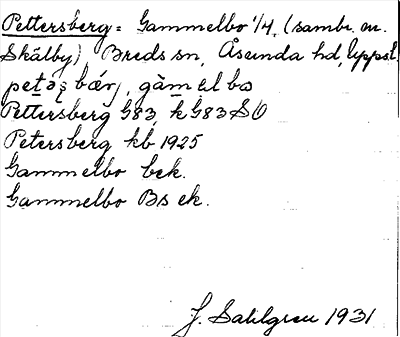 Pettersberg = Gammelbo 1/4, (sambr. m.
Skälby) Breds sn, Åsunda hd, Uppsl.
Pettersberg G83, k G83 SO
Petersberg kb 1925
Gammelbo bek.
Gammelbo Bs ek.
J. Sahlgren 1931